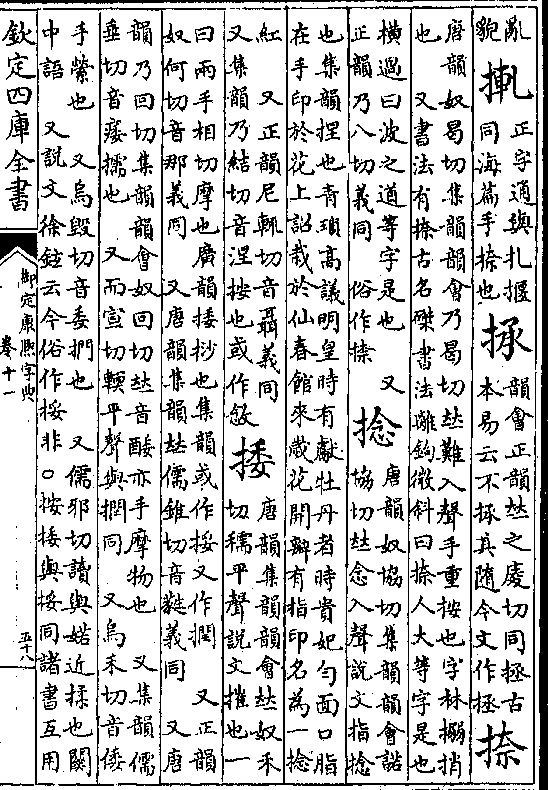 亂
貌
正字通與扎揠
同海篇手捺也
韻會正韻𠀤之慶切同拯古
本易云不拯其隨今文作拯
捺
唐韻奴曷切集韻韻會乃曷切𠀤難入聲手重按也字林搦捎
也　又書法有捺古名磔書法離鉤微斜曰捺人大等字是也
橫過曰波之道等字是也　又
正韻乃八切義同　俗作㨈
捻
唐韻奴協切集韻韻會諾
協切𠀤念入聲說文指捻
也集韻捏也青瑣高議明皇時有獻牡丹者時貴妃勻面口脂
在手印於花上詔栽於仙春館來歲花開瓣有指印名為一捻
紅　又正韻尼輒切音聶義同
又集韻乃結切音涅按也或作敜
捼
唐韻集韻韻會𠀤奴禾
切穤平聲說文摧也一
曰兩手相切摩也廣韻捼挱也集韻或作挼又作撋　又正韻
奴何切音那義同　又唐韻集韻𠀤儒錐切音蕤義同　又唐
韻乃回切集韻韻會奴回切𠀤音㛂亦手摩物也　又集韻儒
垂切音痿擩也　又而宣切輭平聲與撋同　又烏禾切音倭
手縈也　又烏毀切音委捫也　又儒邪切讀與婼近揉也關
中語　又說文徐鉉云今俗作挼非○按捼與挼同諸書互用
欽定四庫全書
御定康熙字典
卷十一
五十八